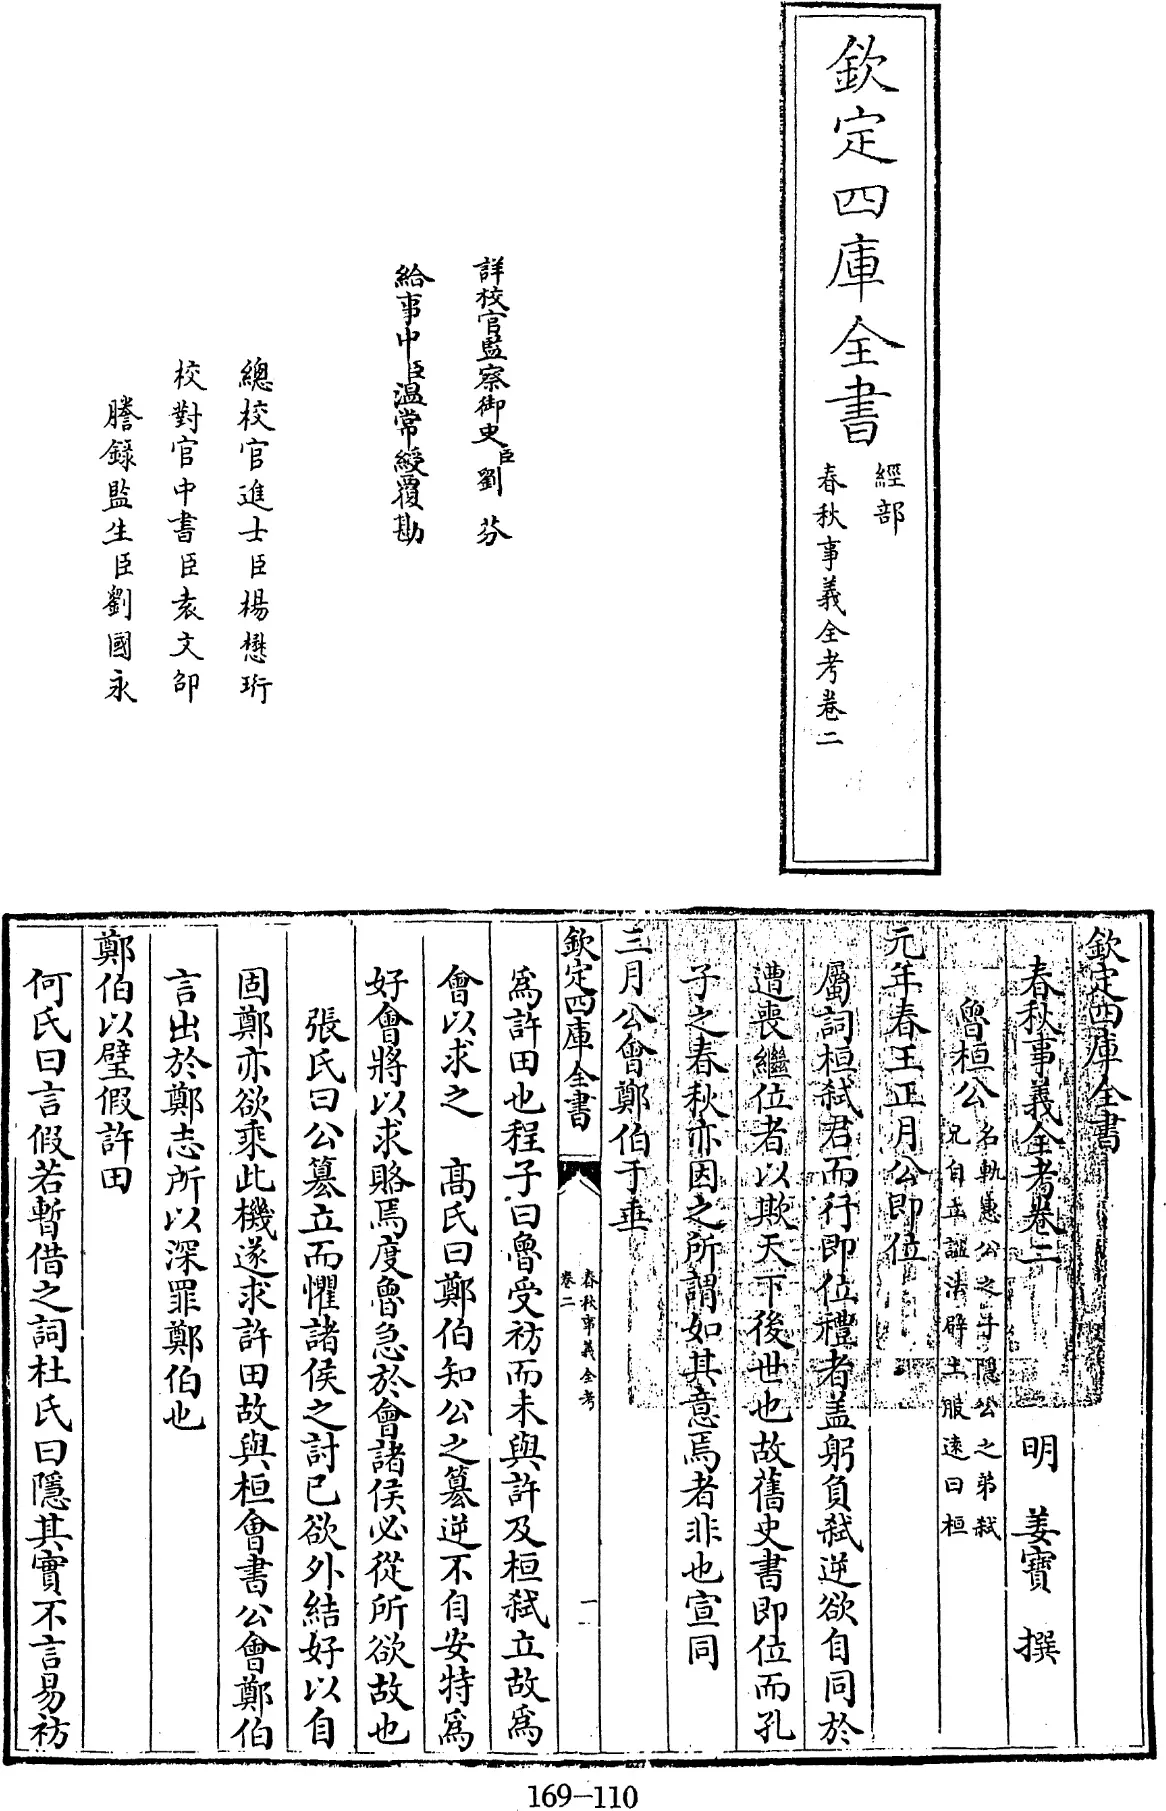 欽定四庫全書
經部
春秋事義全考卷二
詳校官監察御史臣劉芬
給事中臣温常綬覆勘
總校官進士臣楊懋珩
校對官中書臣袁文邵
謄錄監生臣劉國永
欽定四庫全書
春秋事義全考卷二
明 姜寶 撰
魯桓公
名軌惠公之子隱公之弟弑
兄自立諡法辟土服遠曰桓
元年春王正月公即位
屬詞桓弑君而行即位禮者盖躬負弑逆欲自同於
遭喪繼位者以欺天下後世也故舊史書即位而孔
子之春秋亦因之所謂如其意焉者非也宣同
三月公會鄭伯于垂
欽定四庫全書
春秋事義全考
卷二
一
爲許田也程子曰魯受祊而未與許及桓弑立故爲
會以求之 髙氏曰鄭伯知公之簒逆不自安特爲
好會將以求賂焉度魯急於會諸侯必從所欲故也
張氏曰公簒立而懼諸侯之討已欲外結好以自
固鄭亦欲乘此機遂求許田故與桓會書公會鄭伯
言出於鄭志所以深罪鄭伯也
鄭伯以璧假許田
何氏曰言假若暫借之詞杜氏曰隱其實不言易祊
169-110